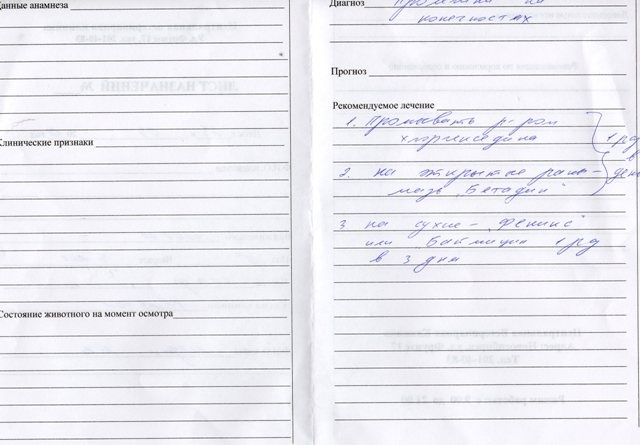 Данные анамнеза
Клинические признаки
Состояние животного на момент осмотра
Диагноз
на
конечностях
Прогноз
Рекомендуемое лечение
1. Промывать р-ром
хлоргексидина
1 раз
в
день
2. на открытые раны -
мазь "Бетадин"
3 на сухие - "Феникс"
или 1 раз
в 3 дня